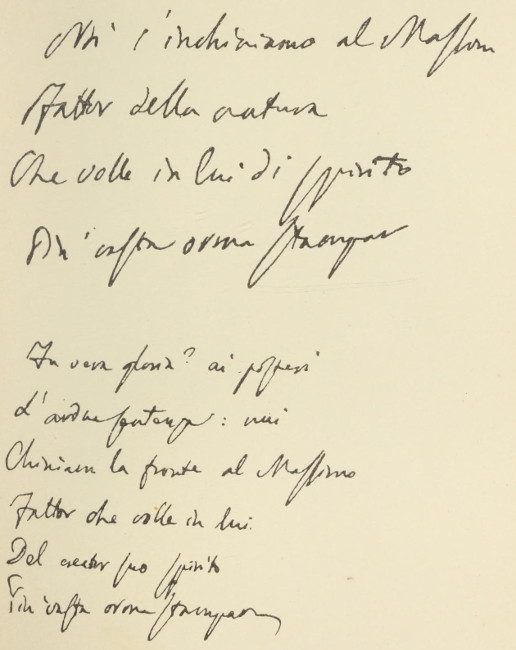 Noi c'inchiniamo al Massimo
Fattor della natura
Che volle in lui di spirito
Più vasta orma stampar
Fu vera gloria? ai posteri
L'ardua sentenza: nui
Chiniam la fronte al Massimo
Fattor che volle in lui
Del creator suo spirito
Più vasta orma stampar